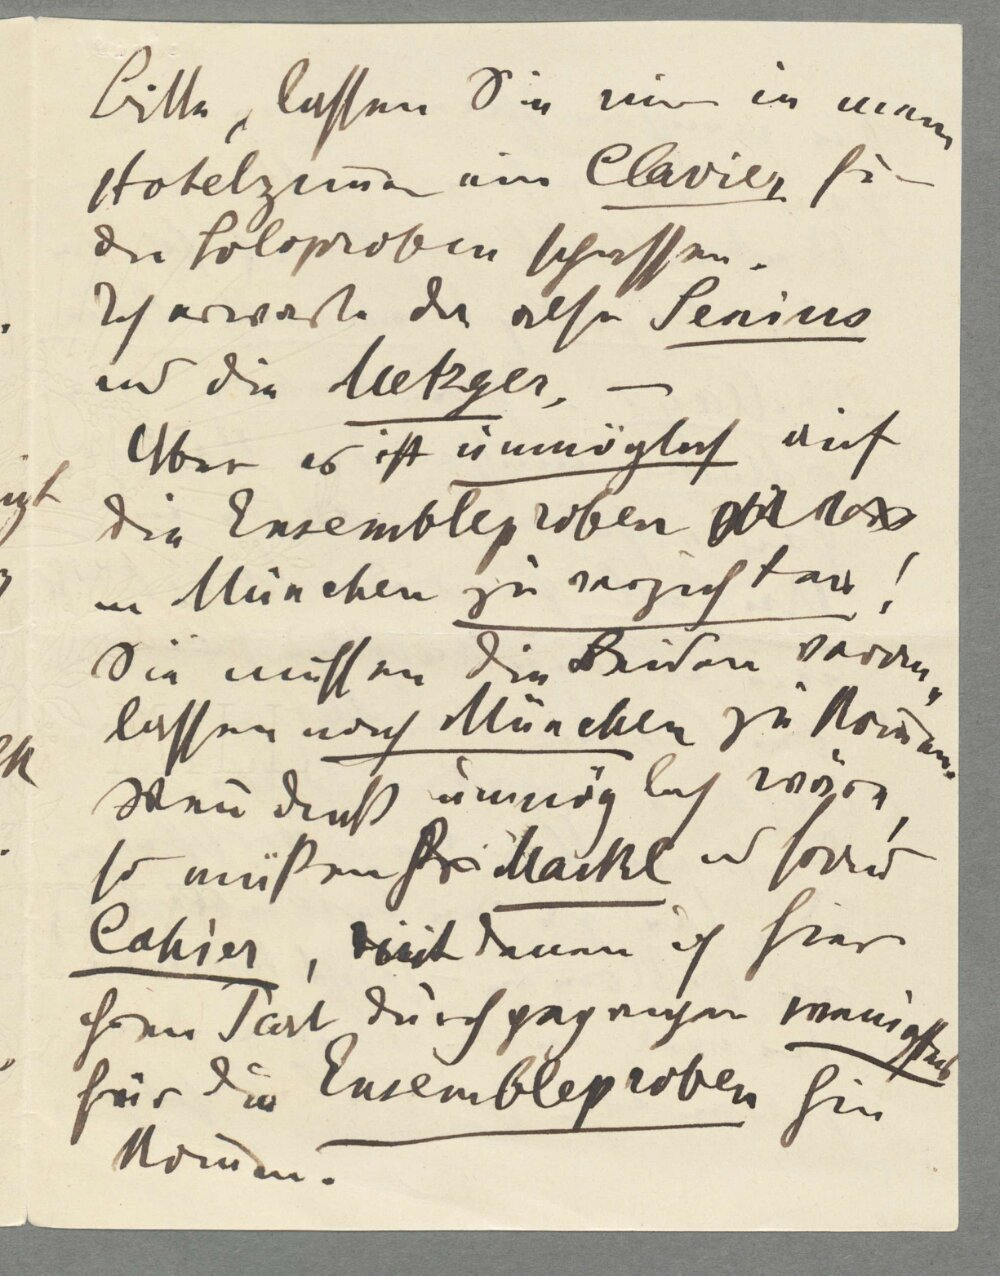 Bitte, lassen Sie mir in mein
Hotelzim̅er ein Clavier für
die Soloproben schaffen.
Ich erwarte da also Senius
und die Metzger. —
Aber es ist unmöglich auf
die Ensembleproben
in München zu verzichten!
Sie müssen die Beiden veran„
lassen nach München zu kom̅en.
Wen̅ dieß unmöglich wäre,
so müßen Maikl und
Cahier, mit denen ich hier
ihren Part durchgegangen wenigstens
für die Ensembleproben hin
kom̅en.